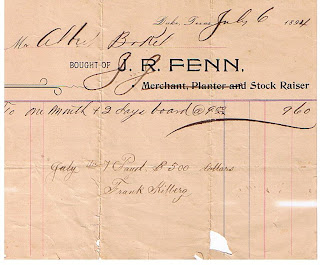 Duke, Texas July 6 1894
Mr Albert
BOUGHT OF J. R. FENN,
Merchant, Planter and Stock Raiser
To one month & 2 days board @ 9 9 60
July 7 Paid $ 5 00 dollars
Frank Hilberg